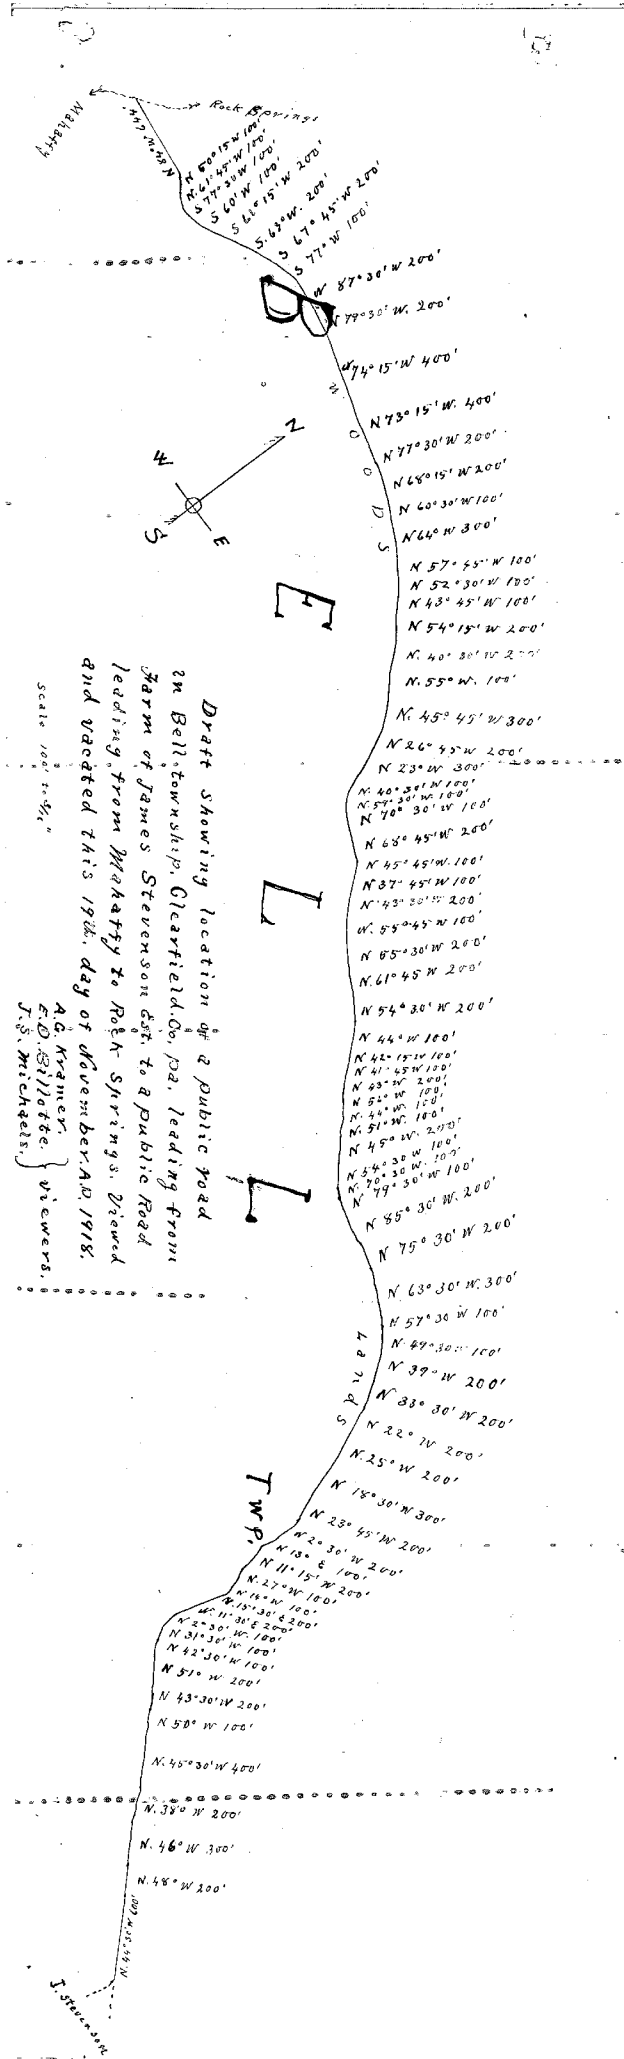 Mahaffy
Rock Springs
N 84° W 644'
N 50° 15' W 100'
N. 61° 45' W 100'
S 77° 30' W 100'
S 60° W 100'
S 61° 15' W 200'
S. 63° W. 200'
S 67° 45' W 200'
S 77° W 100'
N 87° 30' W 200'
N 79° 30' W. 200'
N 74° 15' W 400'
N 73° 15' W. 400'
N 77° 30' W 200'
N 68° 15' W 200'
N 60° 30' W 100'
N 64° W 300'
N 57° 45' W 100'
N 52° 30' W 100'
N 43° 45' W 100'
N 54° 15' W 200'
N. 40° 30' W 200'
N. 55° W. 100'
N. 45° 45' W 300'
N 26° 45' W 200'
N 23° W 300'
N. 40° 30' W 100'
N. 59° 30' W. 100'
N 70° 30' W 100'
N 68° 45' W 200'
N 45° 45' W. 100'
N 37° 45' W 100'
N 43° 30' W 200'
N. 55° 45' W 100'
N 65° 30' W 200'
N. 61° 45' W 200'
N 54° 30' W 200'
N 44° W 100'
N 42° 15' W 100'
N 41° 45' W 100'
N 43° W 200'
N 56° W 100'
N. 44° W. 100'
N. 51° W. 100'
N 45° W. 200'
N 54° 30' W 100'
N. 70° 30' W. 100'
N 79° 30' W 100'
N 85° 30' W. 200'
N 75° 30' W 200'
N. 63° 30' W. 300'
N 57° 30' W 100'
N. 49° 30' W 100'
N 39° W 200'
N 33° 30' W 200'
N 22° W 200'
N. 25° W 200'
N 18° 30' W 300'
N 23° 45' W 200'
N 2° 30' W 200'
N 13° E 100'
N 11° 15' W 200'
N. 27° W 100'
N 14° W 100'
N. 15° 30' E 200'
N. 11° 30' E 200'
N 2° 30' W. 100'
N 31° 30' W 100'
N 42° 30' W 100'
N 51° W 200'
N 43° 30' W 200'
N 50° W 100'
N. 45° 30' W 400'
N. 38° W 200'
N. 46° W 300'
N. 48° W 200'
N. 44° 30' W. 600'
J. Stevenson
BELL TWP.
WOODS
Lands
N
W
E
S
Draft showing location of a public road
in Bell township, Clearfield, Co, pa. leading from
Farm of James Stevenson Est. to a public Road
leading from Mahaffy to Rock Springs. Viewed
and vacated this 19th. day of November. A.D. 1918.
A.G. Kramer.
E.D. Billotte. } viewers.
J.S. Michaels.
scale 100' to